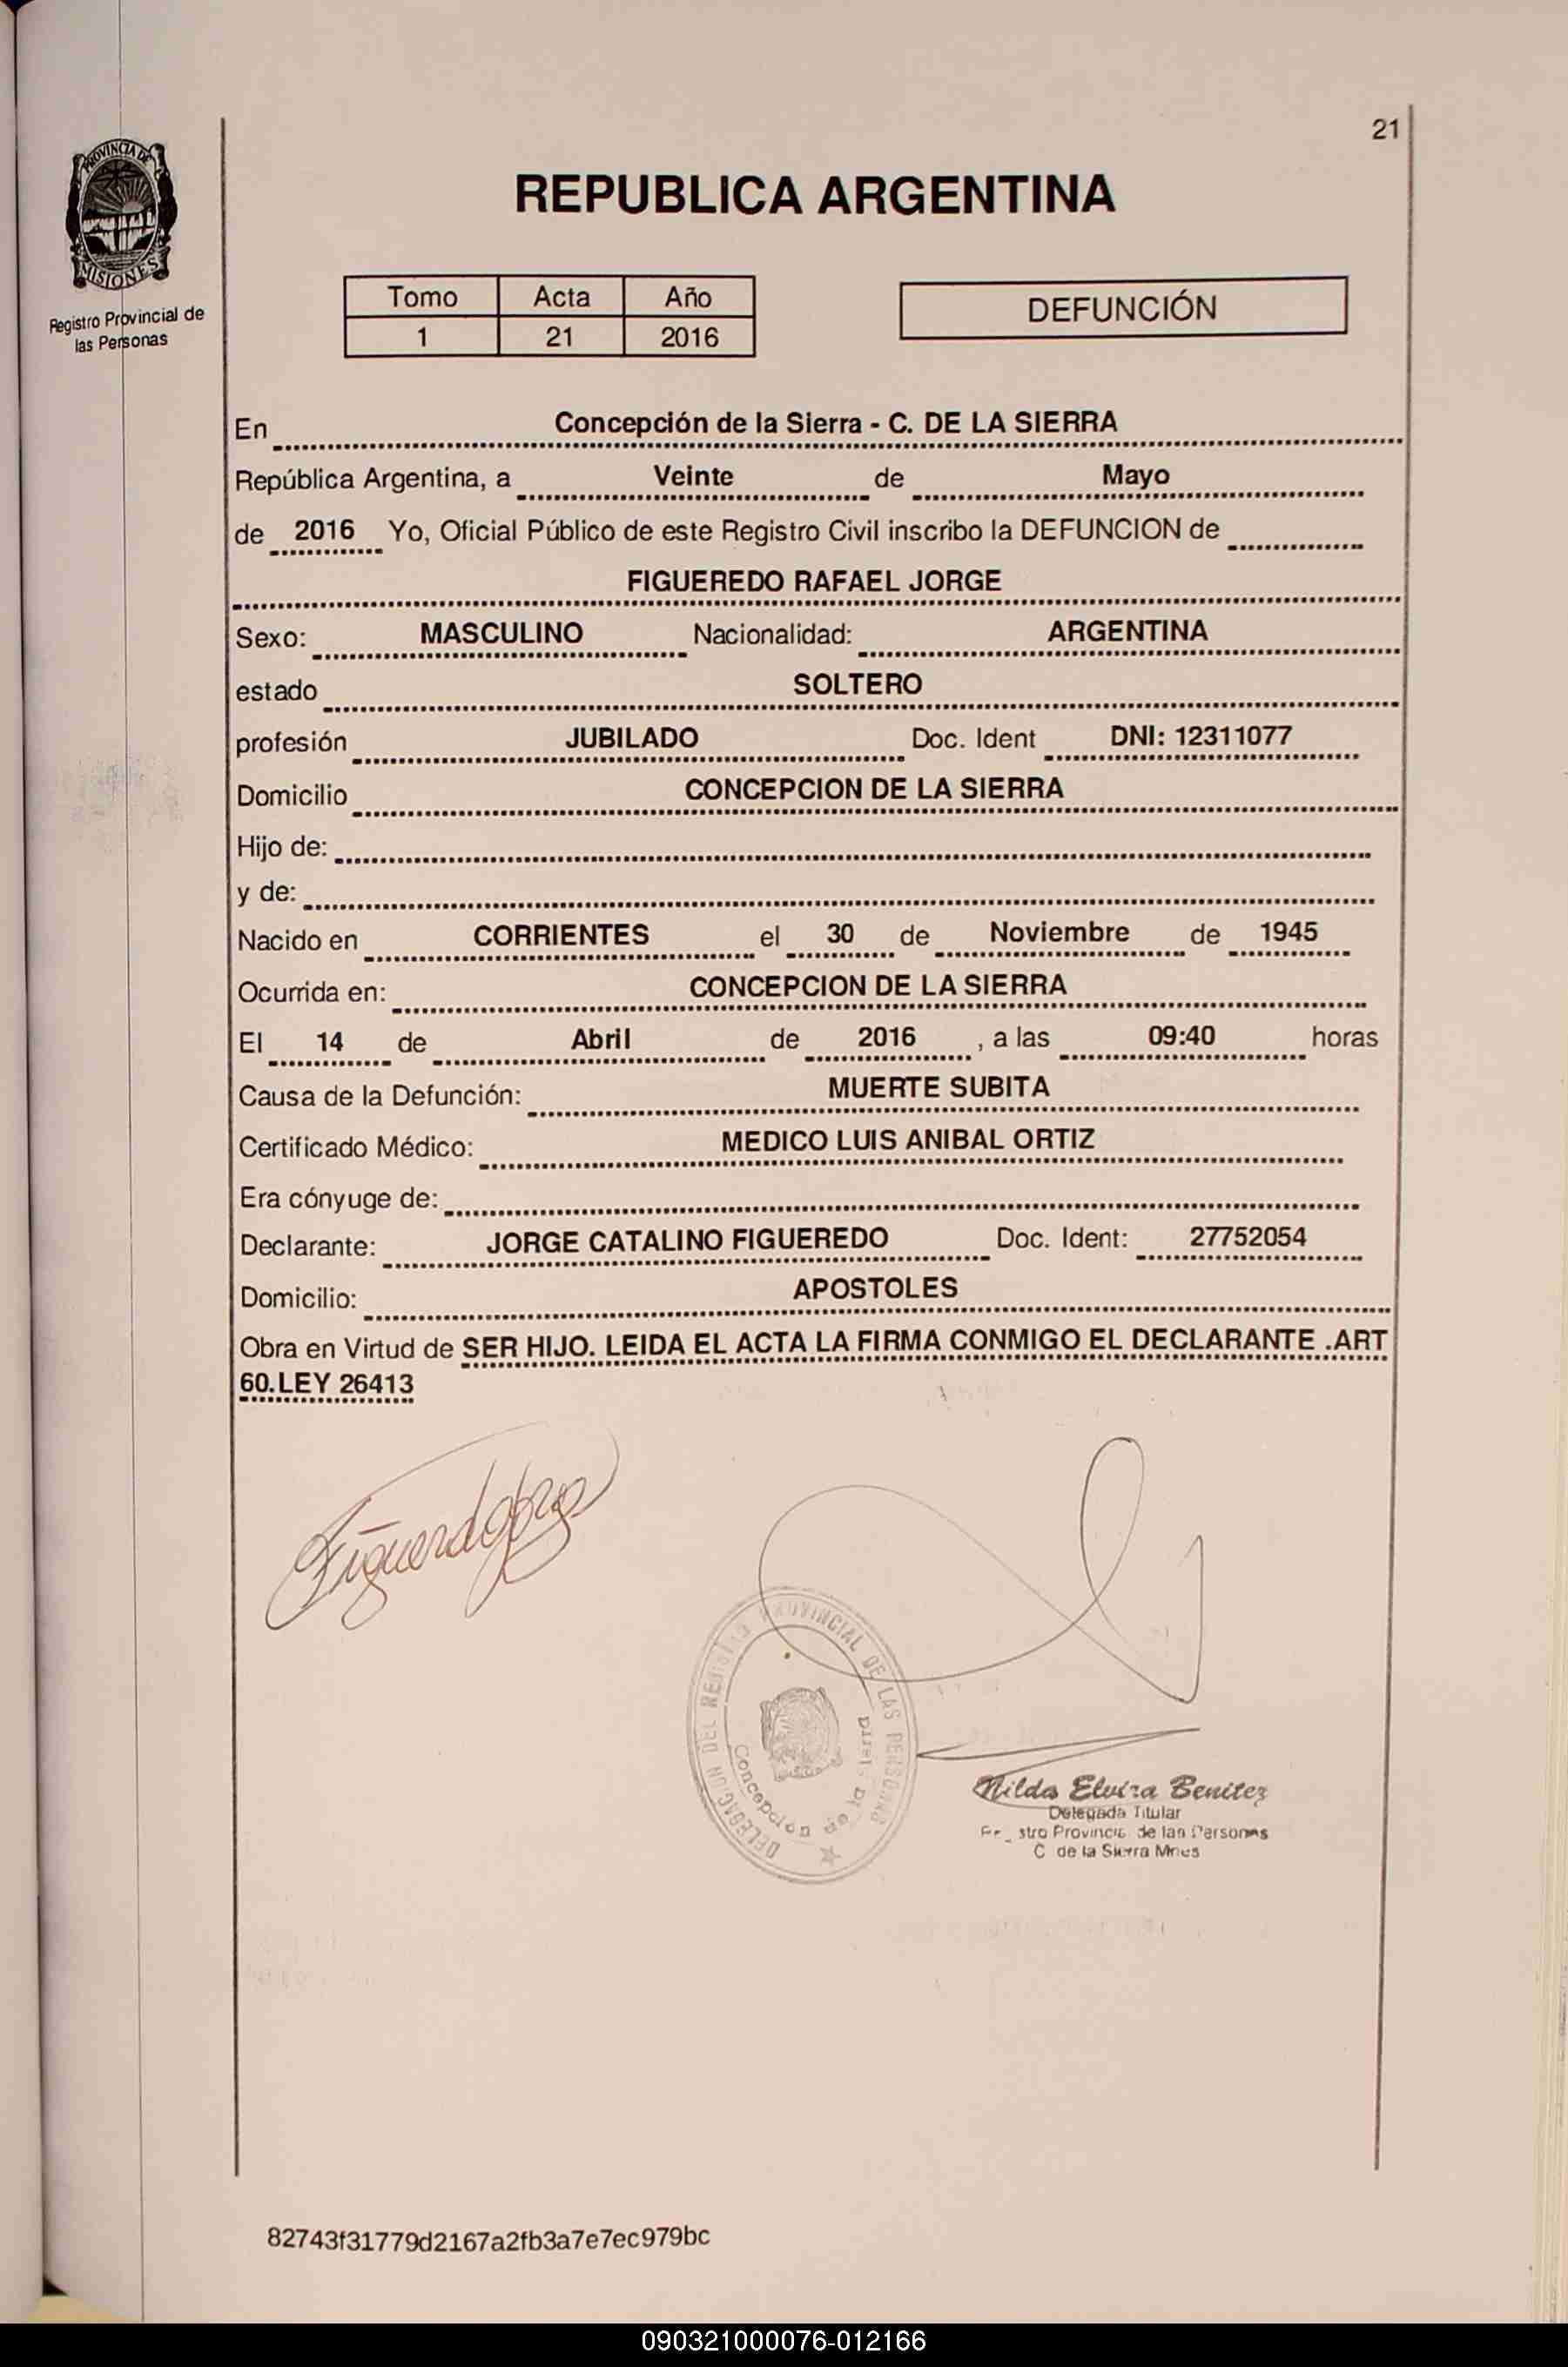 21
PROVINCIA DE
MISIONES
Registro Provincial de
las Personas
REPUBLICA ARGENTINA
Tomo Acta Año
1 21 2016
DEFUNCIÓN
En Concepción de la Sierra - C. DE LA SIERRA
República Argentina, a Veinte de Mayo
de 2016 Yo, Oficial Público de este Registro Civil inscribo la DEFUNCION de
FIGUEREDO RAFAEL JORGE
Sexo: MASCULINO Nacionalidad: ARGENTINA
estado SOLTERO
profesión JUBILADO Doc. Ident DNI: 12311077
Domicilio CONCEPCION DE LA SIERRA
Hijo de:
y de:
Nacido en CORRIENTES el 30 de Noviembre de 1945
Ocurrida en: CONCEPCION DE LA SIERRA
El 14 de Abril de 2016 , a las 09:40 horas
Causa de la Defunción: MUERTE SUBITA
Certificado Médico: MEDICO LUIS ANIBAL ORTIZ
Era cónyuge de:
Declarante: JORGE CATALINO FIGUEREDO Doc. Ident: 27752054
Domicilio: APOSTOLES
Obra en Virtud de SER HIJO. LEIDA EL ACTA LA FIRMA CONMIGO EL DECLARANTE .ART
60.LEY 26413
DELEGACION DEL REGISTRO PROVINCIAL DE LAS PERSONAS
Concepción de la Sierra
Nilda Elvira Benitez
Delegada Titular
Provincial de las Personas
C de la Sierra Mnes
82743f31779d2167a2fb3a7e7ec979bc
090321000076-012166